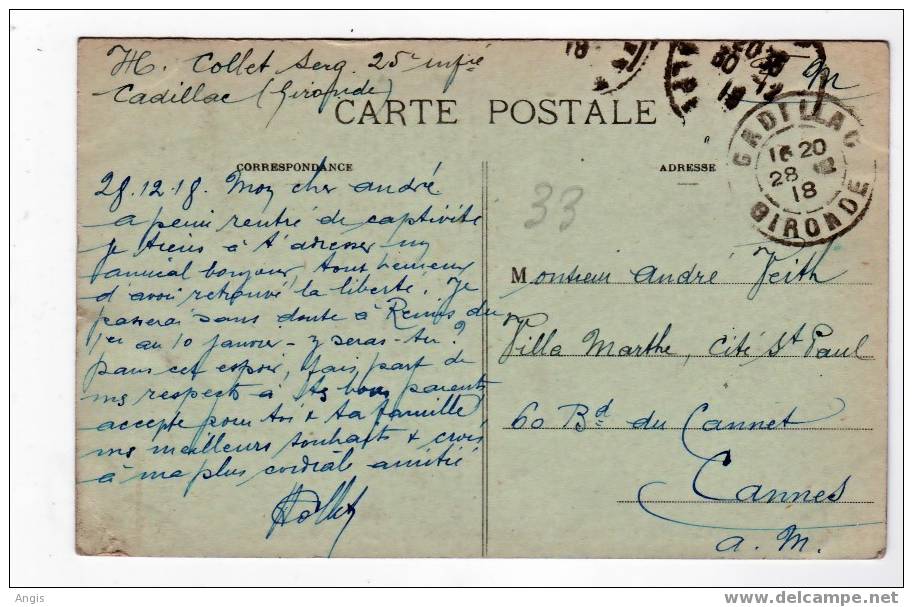 H. Collet Serg. 25e infie
Cadillac (Gironde)
F. M
CARTE POSTALE
CORRESPONDANCE
ADRESSE
CADILLAC
16 20
28
18
GIRONDE
33
28.12.18. Mon cher andré
a peine rentré de captivité
je tiens à t'adresser un
amical bonjour, tout heureux
d'avoir retrouvé la liberté. Je
passerai sans doute à Reims du
1er au 10 janvier - y seras-tu?
Dans cet espoir, fais part de
mes respects à tes bons parents
accepte pour toi & ta famille
mes meilleurs souhaits & crois
à ma plus cordiale amitié
HCollet
Monsieur André Veith
Villa Marthe, Cité St Paul
60 Bd du Cannet
Cannes
a. M.
Angis
www.delcampe.net